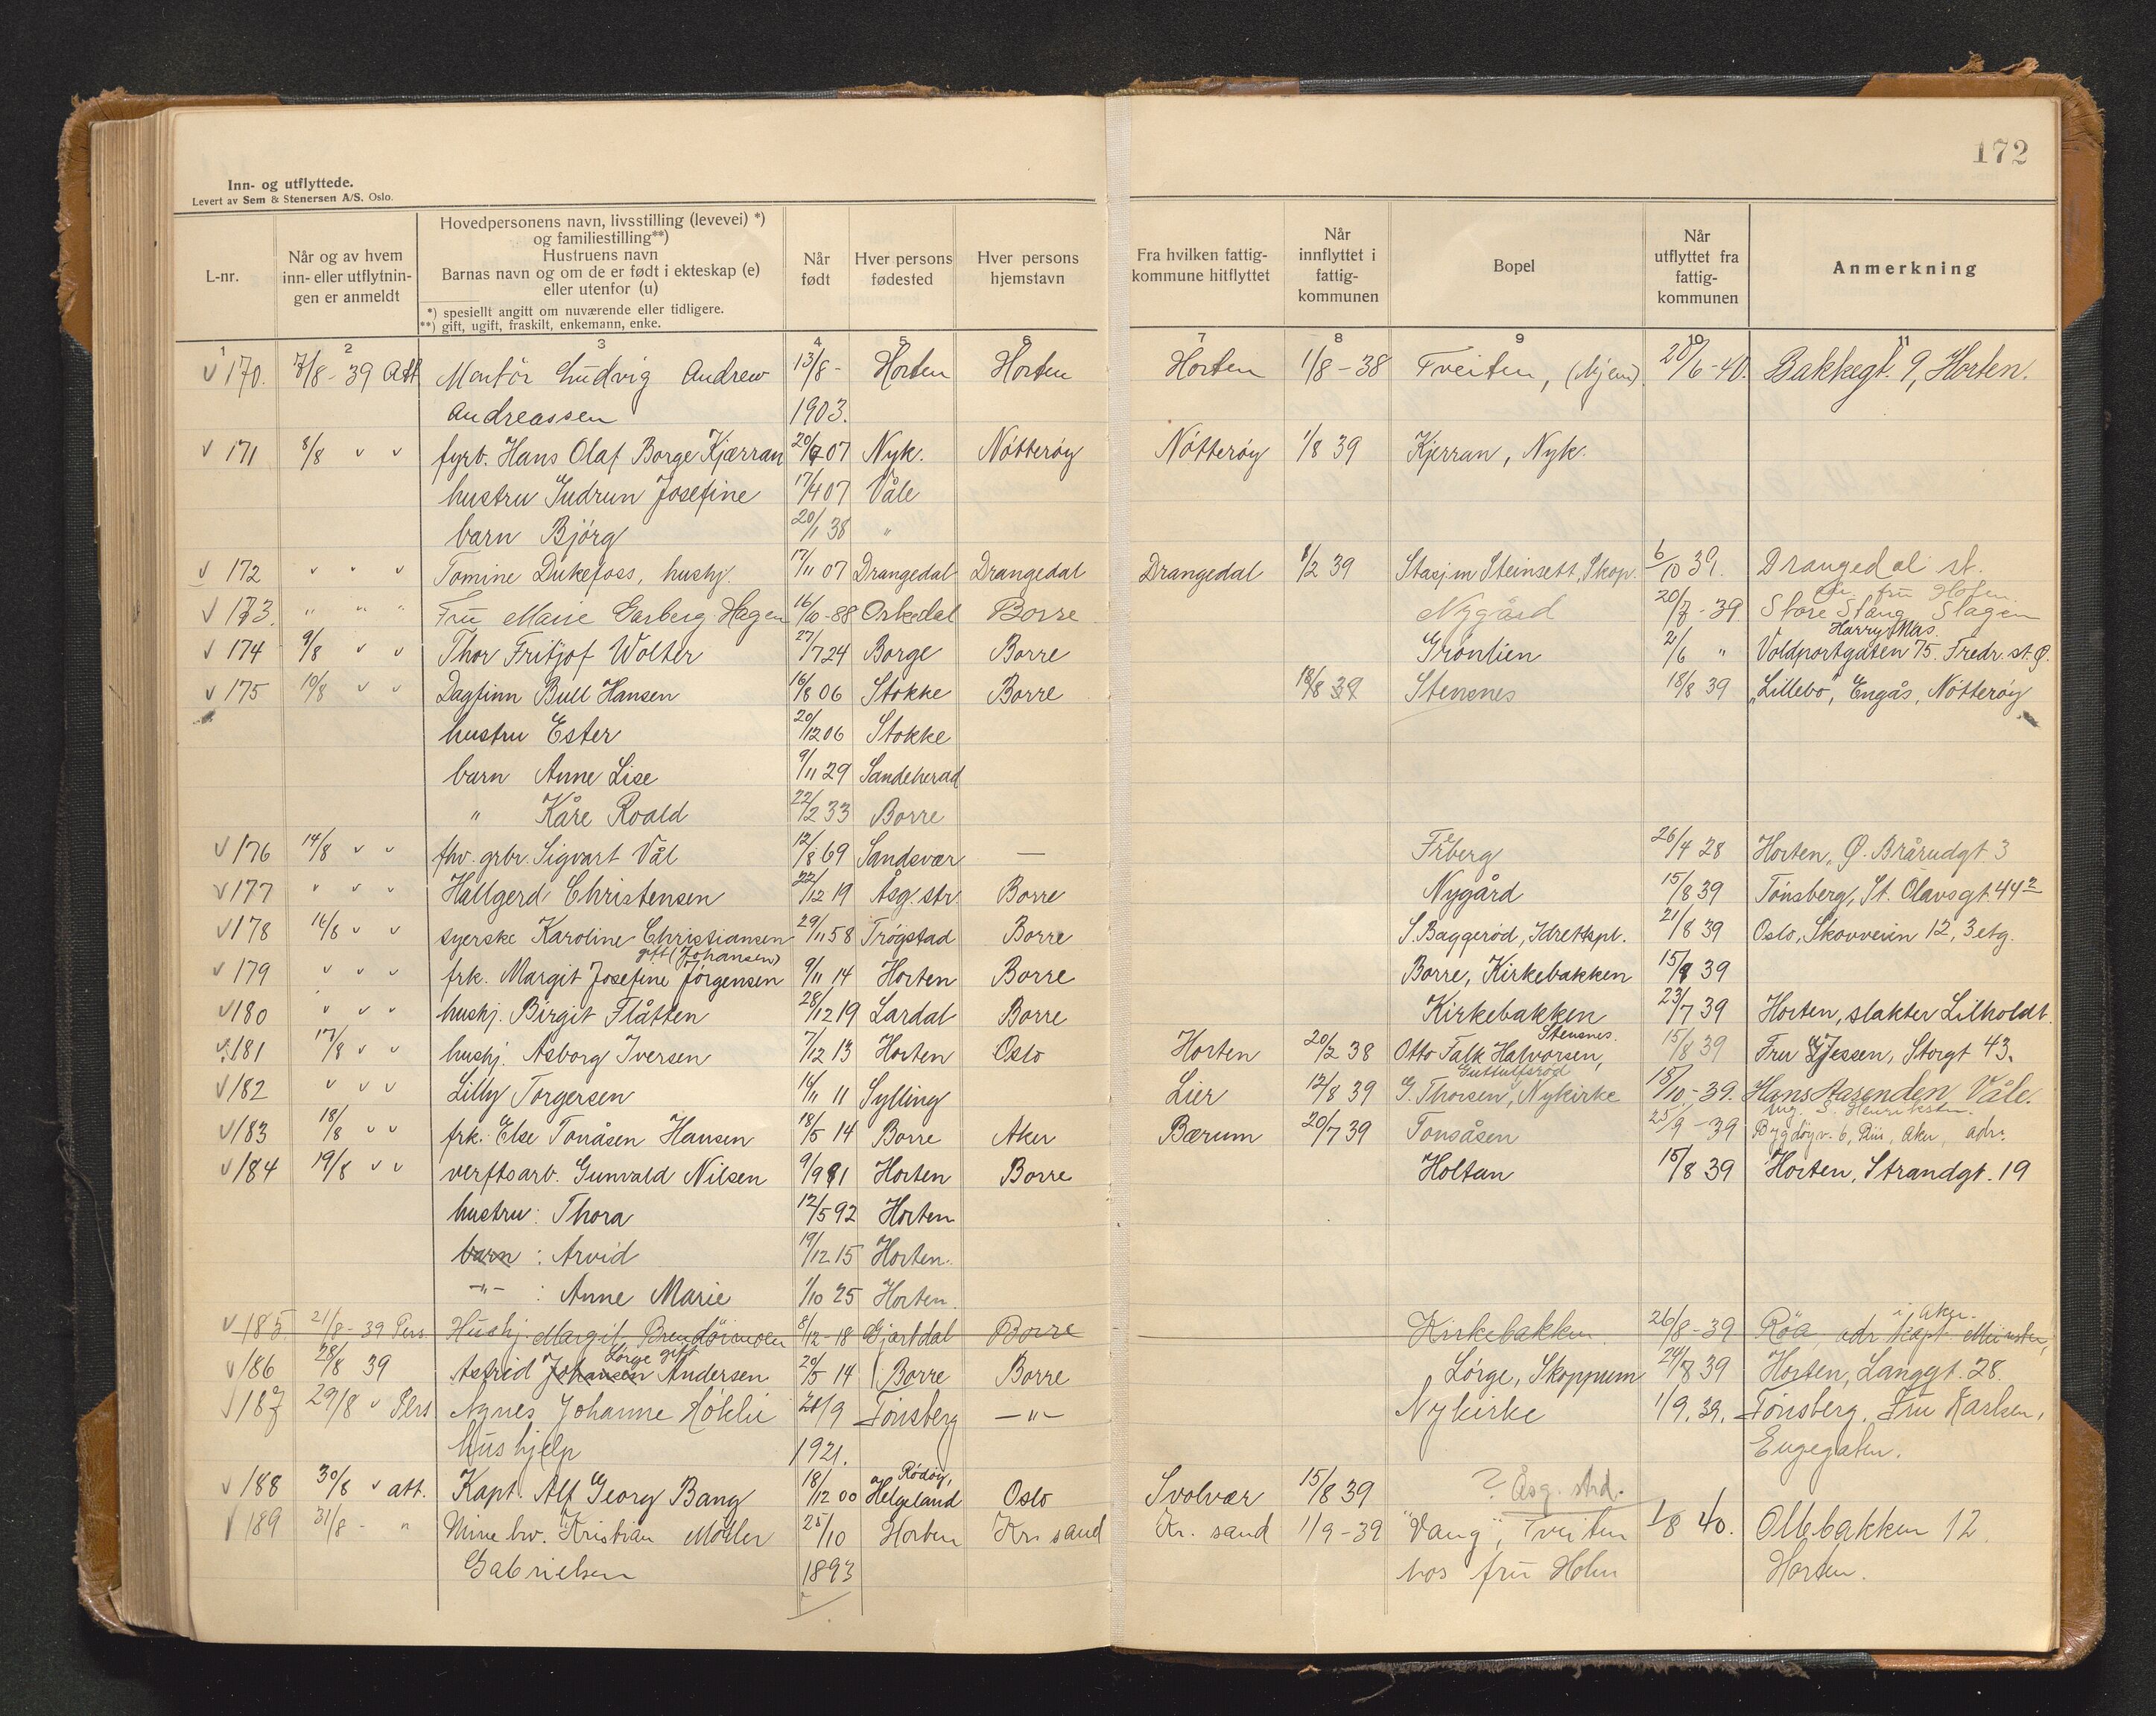 172
Inn- og utflyttede.
Levert av Sem & Stenersen A/S. Oslo.
L-nr. | Når og av hvem inn- eller utflytnin-gen er anmeldt | Hovedpersonens navn, livsstilling (levevei) *) og familiestilling**) Hustruens navn Barnas navn og om de er født i ekteskap (e) eller utenfor (u) *) spesiellt angitt om nuværende eller tidligere. **) gift, ugift, fraskilt, enkemann, enke. | Når født | Hver persons fødested | Hver persons hjemstavn | Fra hvilken fattig-kommune hitflyttet | Når innflyttet i fattig-kommunen | Bopel | Når utflyttet fra fattig-kommunen | Anmerkning
1 2 3 4 5 6 7 8 9 10 11
v 170. 7/8 - 39 Att Montör Ludvig Andrew 13/8 - Horten Horten Horten 1/8 - 38 Tveiten, 20/6 - 40. Bakkegt. 9, Horten.
Andreassen 1903.
v 171 8/8 " " fyrb. Hans Olaf Borge Kjærran 20/7 07 Nyk. Nøtterøy Nøtterøy 1/8 39 Kjerran, Nyk.
hustru Gudrun Josefine 17/4 07 Våle
barn Bjørg 20/1 38 "
v 172 " " " Tomine Dukefoss, hushj. 17/11 07 Drangedal Drangedal Drangedal 1/2 39 Stasj.m Steinsett, Skop. 6/10 39. Drangedal st.
v 173. " " " Fru Marie Garberg Hagen 16/10 - 88 Orkedal Borre Nygård 20/7 - 39. Store Stang Slagen
v 174 9/8 " " Thor Fritjof Wolter 27/7 24 Borge Borre Grønlien 2/6 " Voldportgaten 75. Fredr. st. Ø.
v 175 10/8 " " Dagfinn Bull Hansen 16/8 06 Stokke Borre 18/8 39 Stensnes 18/8 39 "Lillebo", Engås, Nøtterøy
hustru Ester 20/12 06 Stokke
barn Anne Lise 9/11 29 Sandeherad
" Kåre Roald 22/2 33 Borre
v 176 14/8 " " fhv. grbr. Sigvart Vål 12/8 69 Sandsvær — Frberg 26/4 28 Horten, Ø. Brårudgt. 3
v 177 " " " Hallgerd Christensen 22/12 19 Åsg. str. Borre Nygård 15/8 39 Tønsberg, St. Olavsgt. 44²
v 178 16/8 " " syerske Karoline Christiansen 29/11 58 Trøgstad Borre S. Baggerød, Idrettspl. 21/8 39 Oslo, Skovveien 12, 3 etg.
gift (Johansen)
v 179 " " " frk. Margit Josefine Jørgensen 9/11 14 Horten Borre Borre, Kirkebakken 15/8 39
v 180 " " " hushj. Birgit Flåtten 28/12 19 Lardal Borre Kirkebakken 23/7 39 Horten, slakter Lilholdt.
Stensnes.
v 181 17/8 " " hushj. Asborg Iversen 7/12 13 Horten Oslo Horten 20/2 38 Otto Falk Halvorsen, 15/8 39 Fru Jessen, Storgt 43.
v 182 " " " Lilly Torgersen 16/11 11 Sylling Lier 12/8 39 G. Thorsen, Nykirke 18/10 - 39. Hans Aasenden Våle.
v 183 18/8 " " frk. Else Tonåsen Hansen 18/5 14 Borre Aker Bærum 20/7 39 Tonsåsen 25/9 - 39 Bygdøyv. 6, Aker, adr.
v 184 19/8 " " verftsarb. Gunvald Nilsen 9/9 91 Horten Borre Holtan 15/8 39 Horten, Strandgt. 19
hustru: Thora 12/5 92 Horten
barn : Arvid 19/12 15 Horten.
-"- : Anne Marie 1/10 25 Horten.
i Aker.
v 185. 21/8 - 39 Pers. Hushj. Margit 8/12 - 18 Hjartdal Borre Kirkebakken 26/8 - 39 Røa, adr kapt Münster,
Lørge gift
v 186 28/8 39 Astrid Johansen Andersen 20/5 14 Borre Borre Lørge, Skoppum 24/8 39 Horten, Langgt. 28.
v 187 29/8 " Pers Agnes Johanne Høkli 21/9 Tønsberg -"- Nykirke 1/9. 39. Tønsberg. Fru Karlsen,
hushjelp 1921. Engegaten.
v 188 30/8 " att. Kapt. Alf Georg Bang 18/12 00 Rødøy, Helgeland Oslo Svolvær 15/8 39 ? Åsg. strd.
v 189 31/8 - " Minebr. Kristian Møller 25/10 Horten Kr. sand Kr. sand 1/9 - 39 "Vang", Tveiten 1/8 40. Ollebakken 12.
Gabrielsen 1893 hos fru Holm Horten.